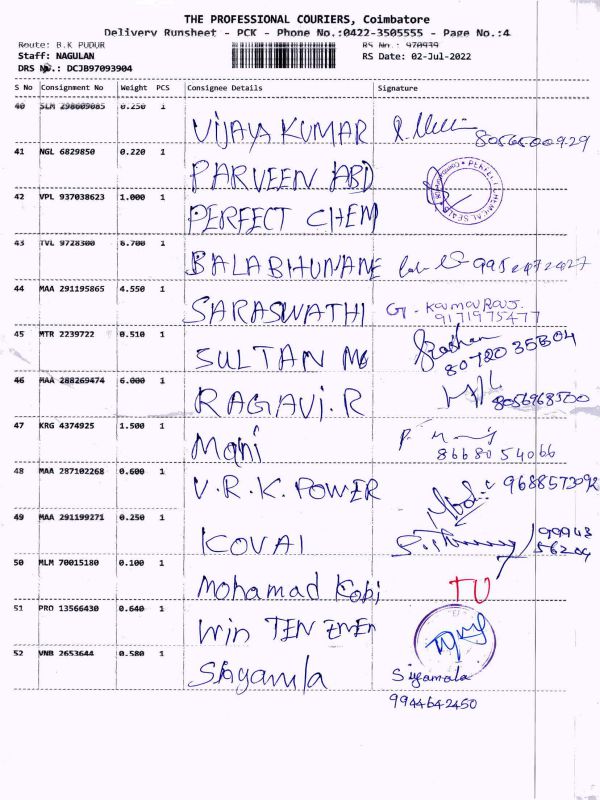 THE PROFESSIONAL COURIERS, Coimbatore
Delivery Runsheet - PCK - Phone No.:0422-3505555 - Page No.:4
Route: B.K PUDUR RS No.: 970939
Staff: NAGULAN RS Date: 02-Jul-2022
DRS No.: DCJB97093904
S No Consignment No Weight PCS Consignee Details Signature
40 SLM 298609085 0.250 1
VIJAYA KUMAR 8056500929
41 NGL 6829850 0.220 1
PARVEEN ABD
42 VPL 937038623 1.000 1
PERFECT CHEM
43 TVL 9728300 6.700 1
BALABHUNANE
44 MAA 291195865 4.550 1
SARASWATHI G. KumaRaj.
9171975477
45 MTR 2239722 0.510 1
SULTAN Mo 8072035804
46 MAA 288269474 6.000 1
RAGAVI.R 8056968500
47 KRG 4374925 1.500 1
Mani
8668054066
48 MAA 287102268 0.600 1
V.R.K. POWER 9688573092
49 MAA 291199271 0.250 1
KOVAI 99943
56204
50 MLM 70015180 0.100 1
Mohamad Kobi TU
51 PRO 13566430 0.640 1
Win TEN ENER
52 VNB 2653644 0.580 1
Shyamla Siyamala
9944642450